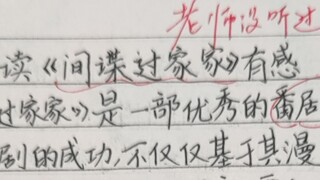 老师没听过
读《间谍过家家》有感
过家家》是一部优秀的番居
剧的成功,不仅仅基于其漫